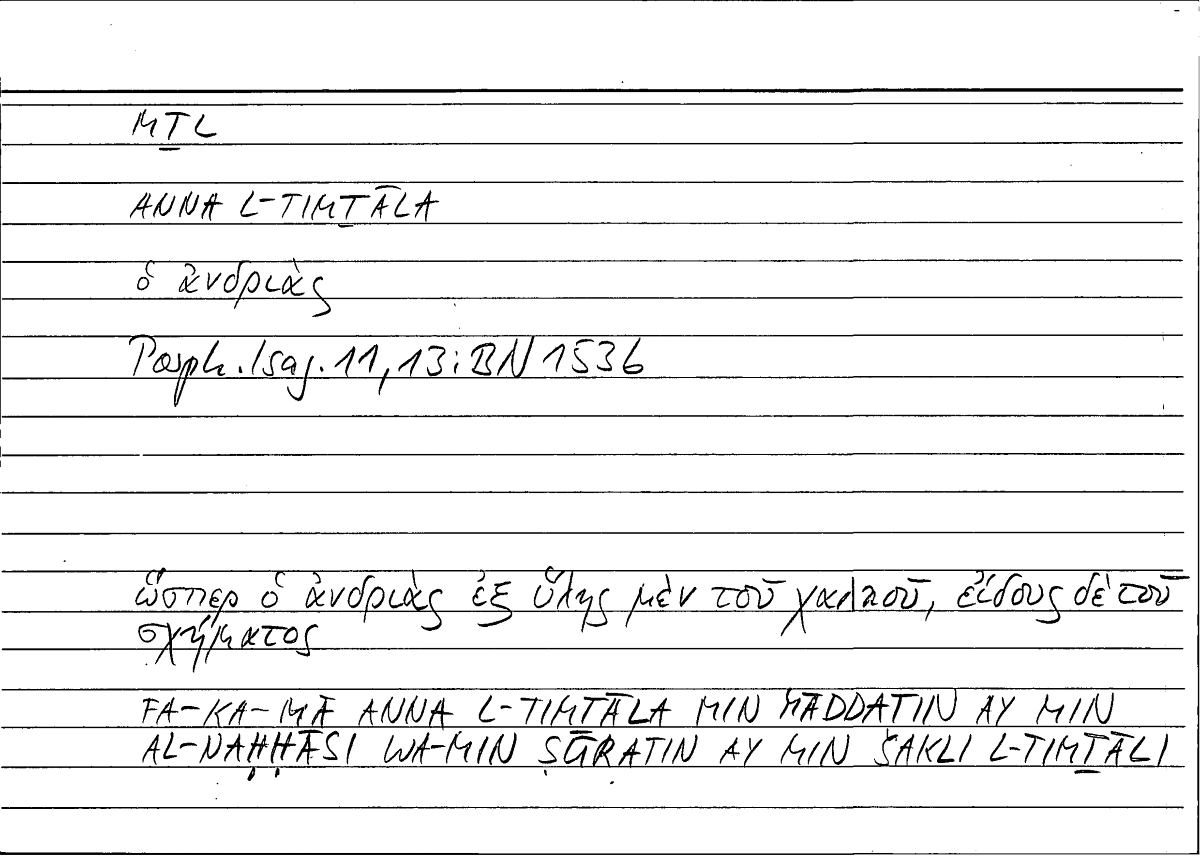 MṮL
ANNA L-TIMṮĀLA
ὁ ἀνδριὰς
Porph. Isag. 11,13: BN 1536
ὥσπερ ὁ ἀνδριὰς ἐξ ὕλης μὲν τοῦ χαλκοῦ, εἴδους δὲ τοῦ
σχήματος
FA-KA-MĀ ANNA L-TIMTĀLA MIN MĀDDATIN AY MIN
AL-NAḤḤĀSI WA-MIN ṢŪRATIN AY MIN ŠAKLI L-TIMṮĀLI